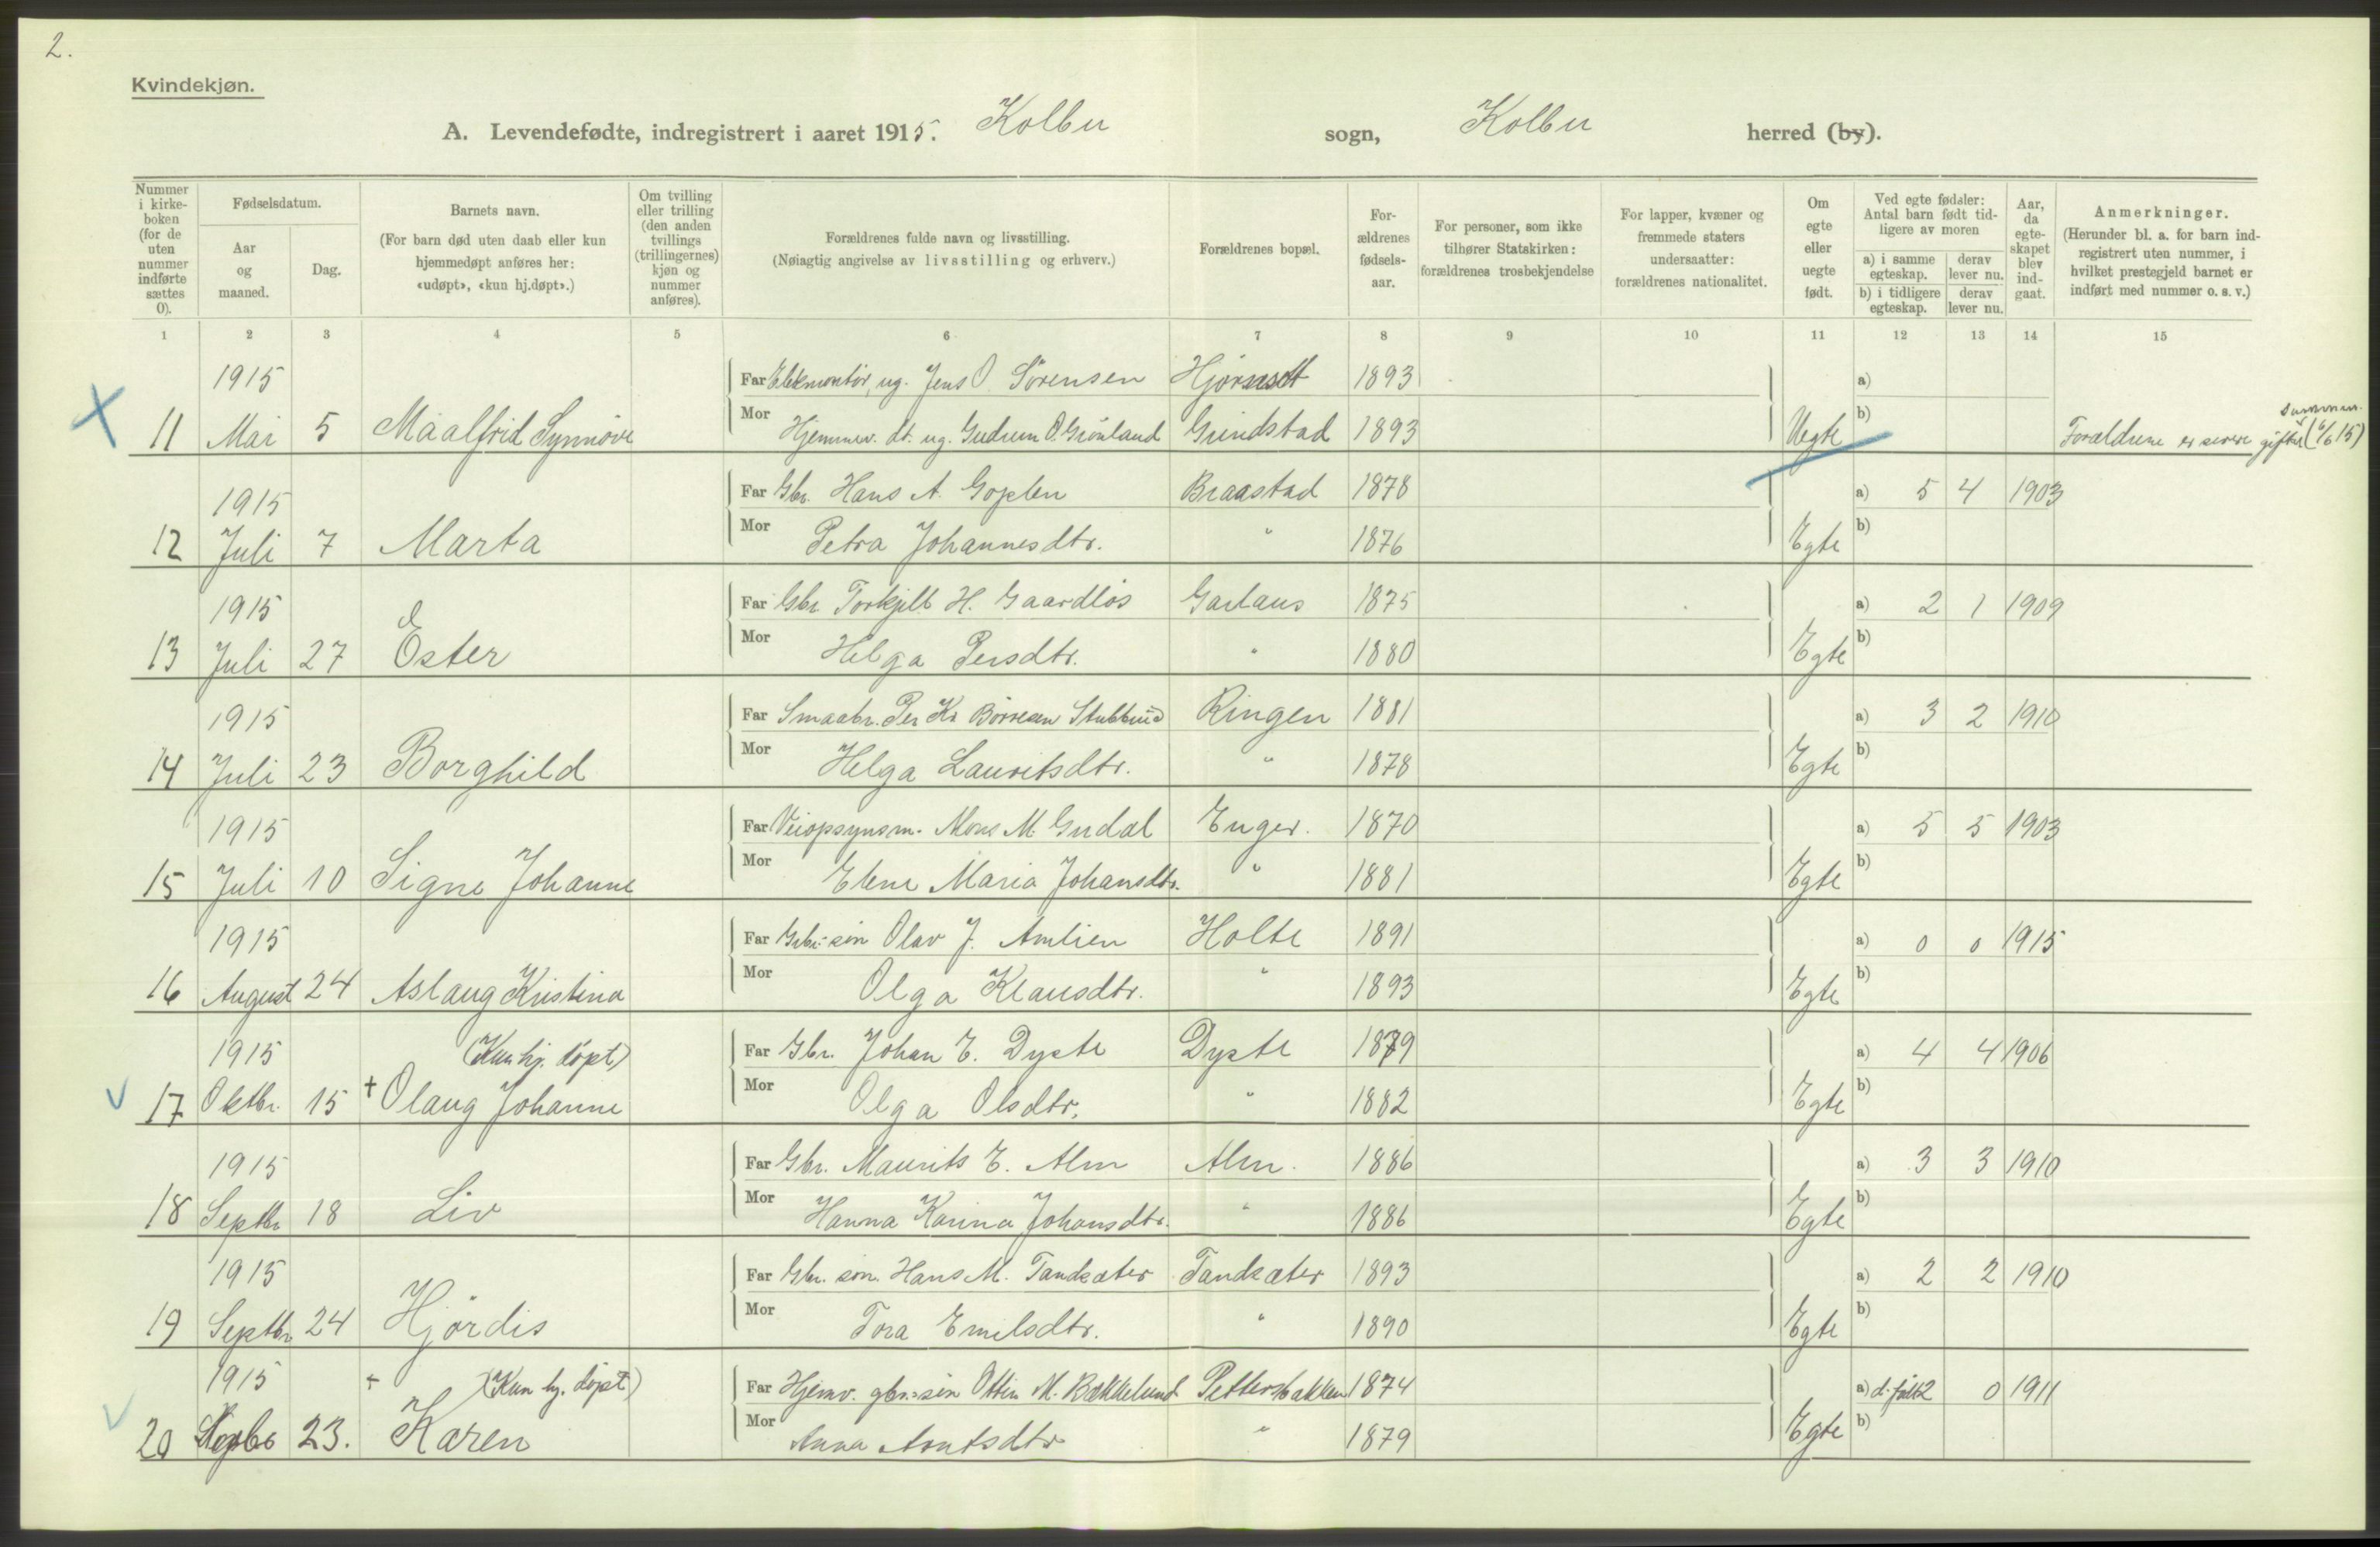 2.
Kvindekjøn.
A. Levendefødte, indregistrert i aaret 1915. Kolbu sogn, Kolbu herred (by).
Nummer i kirke-boken (for de uten nummer indførte sættes 0).
Fødselsdatum.
Aar og maaned.
Dag.
Barnets navn.
(For barn død uten daab eller kun hjemmedøpt anføres her: «udøpt», «kun hj.døpt».)
Om tvilling eller trilling (den anden tvillings (trillingernes) kjøn og nummer anføres).
Forældrenes fulde navn og livsstilling.
(Nøiagtig angivelse av livsstilling og erhverv.)
Forældrenes bopæl.
For-ældrenes fødsels-aar.
For personer, som ikke tilhører Statskirken: forældrenes trosbekjendelse
For lapper, kvæner og fremmede staters undersaatter: forældrenes nationalitet.
Om egte eller uegte født.
Ved egte fødsler: Antal barn født tid-ligere av moren
a) i samme egteskap.
derav lever nu.
b) i tidligere egteskap.
derav lever nu.
Aar, da egte-skapet blev ind-gaat.
Anmerkninger.
(Herunder bl. a. for barn ind-registrert uten nummer, i hvilket prestegjeld barnet er indført med nummer o. s. v.)
1 2 3 4 5 6 7 8 9 10 11 12 13 14 15
1915 Far Elekmontør, ug. Jens O. Sörensen 1893 a)
X 11 Mai 5 Maalfrid Synnöve Mor Hjemmev. dt. ug. Gudrun O. Grönland Grindstad 1893 Uegte b) Forældrene er senere gifter sammen (6/6 15)
1915 Far Gbr. Hans A. Goplen Braastad 1878 a) 5 4 1903
12 Juli 7 Marta Mor Petra Johannesdtr. " 1876 Egte b)
1915 Far Gbr. Torkjell H. Gaardlös Garlaus 1875 a) 2 1 1909
13 Juli 27 Ester Mor Helga Persdtr. " 1880 Egte b)
1915 Far Smaabr. Per Kr Börresen Stubbrud Ringen 1881 a) 3 2 1910
14 Juli 23 Borghild Mor Helga Lauritsdtr. " 1878 Egte b)
1915 Far Veiopsynsm. Mons M. Gudal Enger. 1870 a) 5 5 1903
15 Juli 10 Signe Johanne Mor Elene Maria Johansdtr. " 1881 Egte b)
1915 Far Gbr.-sön Olav J. Amlien Holte 1891 a) 0 0 1915
16 August 24 Aslaug Kristina Mor Olga Klausdtr. " 1893 Egte b)
1915 (Kun hj. döpt) Far Gbr. Johan E. Dyste Dyste 1879 a) 4 4 1906
17 Oktbr. 15 + Olaug Johanne Mor Olga Olsdtr. " 1882 Egte b)
1915 Far Gbr. Maurits E. Alm Alm. 1886 a) 3 3 1910
18 Septbr 18 Liv Mor Hanna Karina Johansdtr. " 1886 Egte b)
1915 Far Gbr. sön. Hans M. Tandsæter Tandsæter 1893 a) 2 2 1910
19 Septbr 24 Hjördis Mor Tora Emilsdtr. " 1890 Egte b)
1915 + (Kun hj. döpt) Far Hjemv. gbr.-sön Otten M. Bækkelund Pettersbakken 1874 a) d.födt 2 0 1911
20 23. Karen Mor Anna Arntsdtr " 1879 Egte b)